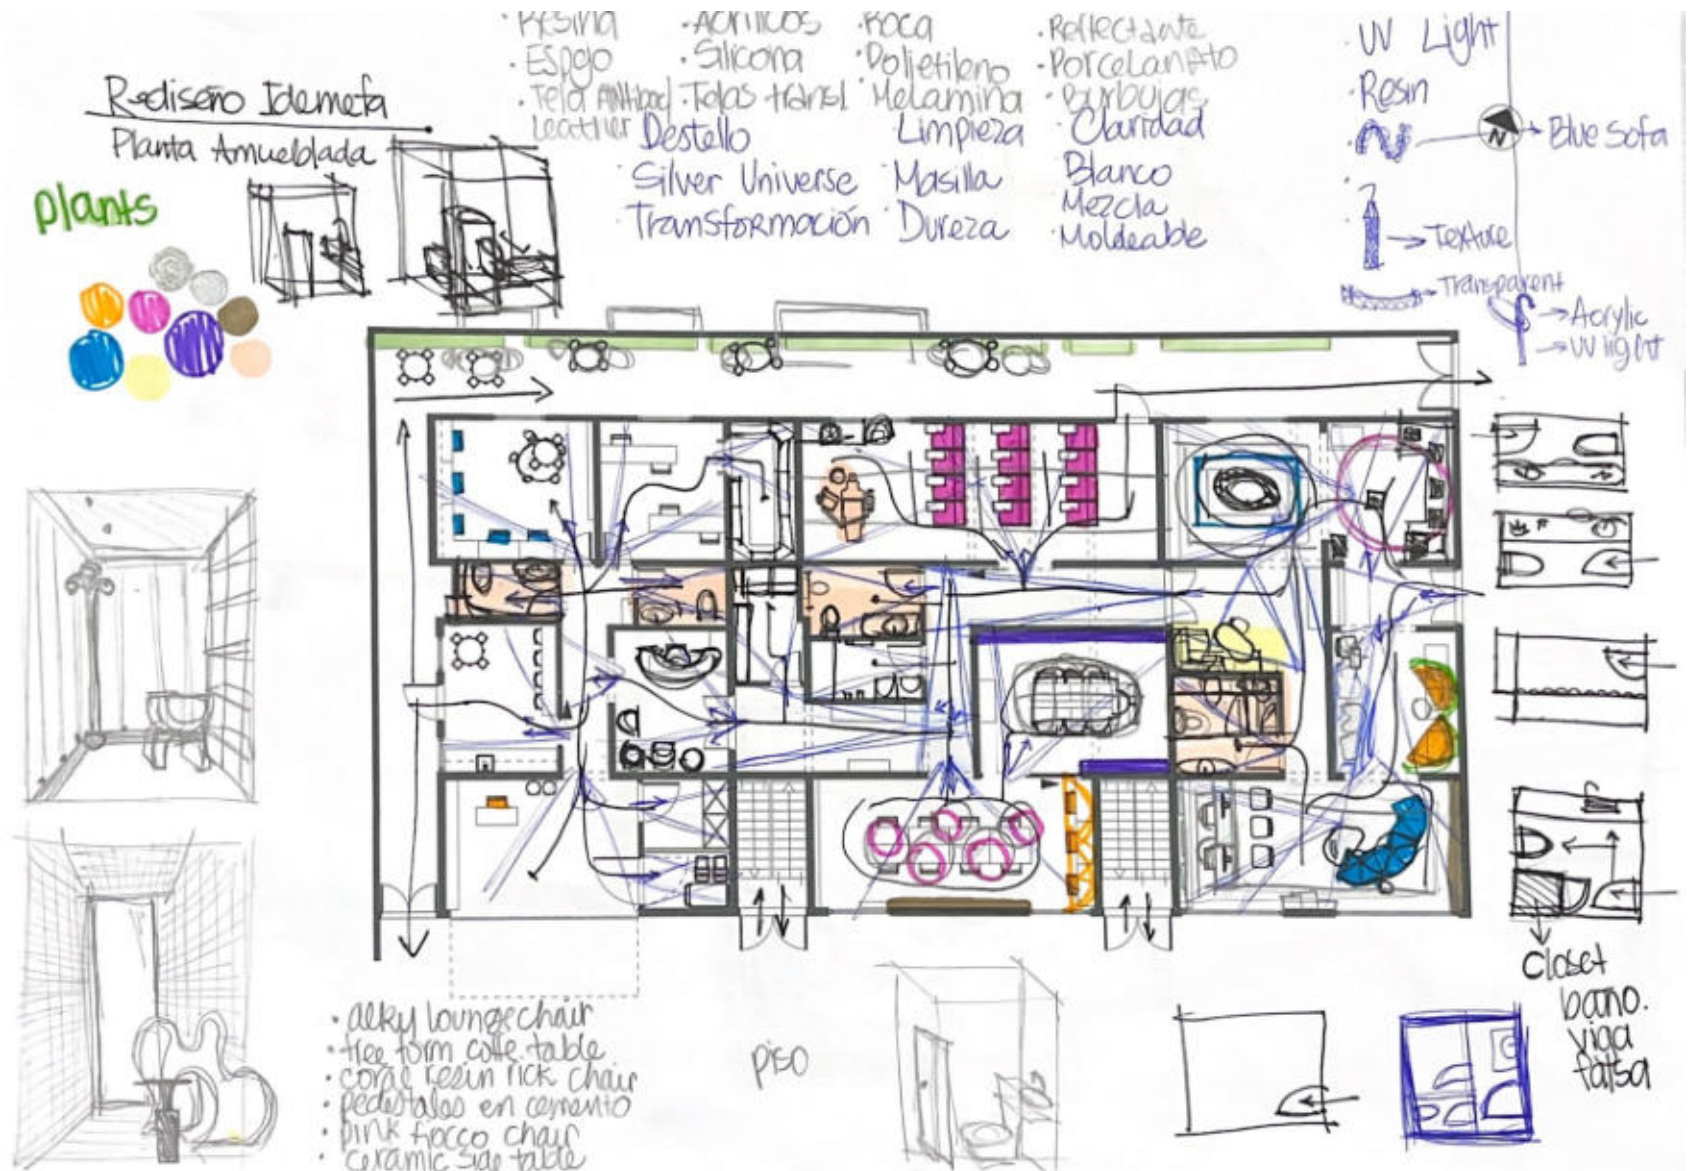 Rediseño Idemefa
Planta Amueblada
plants
· Resina
· Espejo
· Tela Antibact
Leather
· Acrílicos
· Silicona
· Telas transl
· Roca
· Polietileno
· Melamina
· Reflectante
· Porcelanato
· Burbujas
Destello
· Silver Universe
· Transformación
Limpieza
· Masilla
· Dureza
· Claridad
Blanco
Mezcla
· Moldeable
· UV Light
· Resin
N
Blue Sofa
Texture
Transparent
Acrylic
UV light
closet
baño.
viga
falsa
· alky lounge chair
· free form coffe. table
· coral resin rick chair
· pedestales en cemento
· pink fiocco chair
· ceramic side table
piso